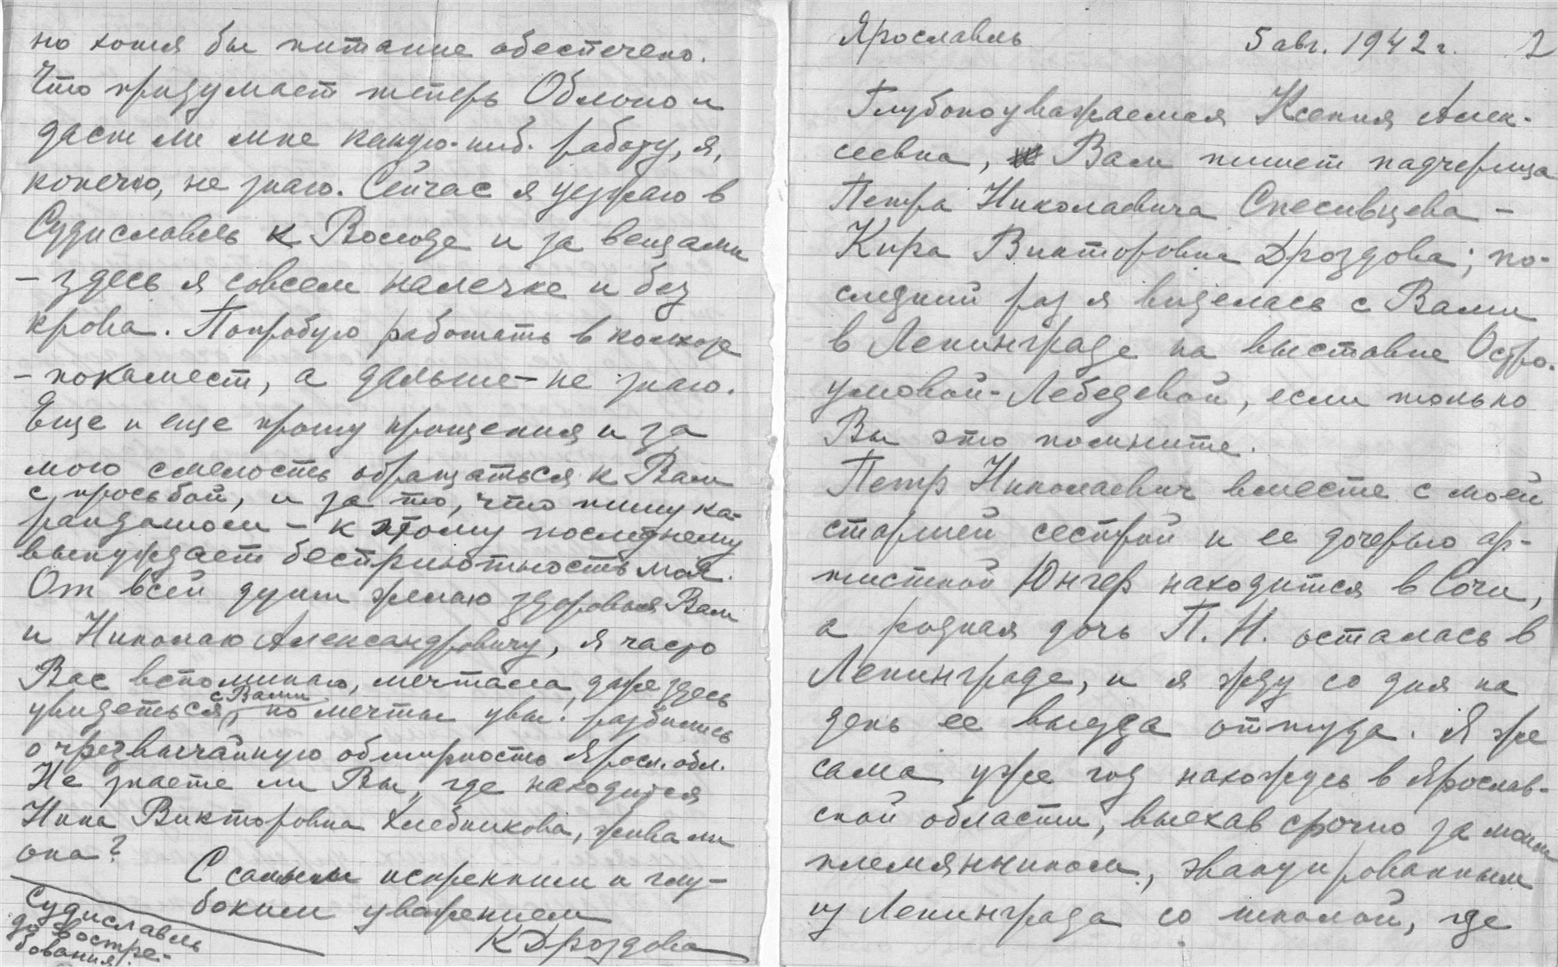 но хотя бы питание обеспечено.
Что придумает теперь Облоно и
даст ли мне какую-ниб. работу, я,
конечно, не знаю. Сейчас я уезжаю в
Судиславль к Володе и за вещами
– здесь я совсем налегке и без
крова. Попробую работать в колхозе
– покамест, а дальше – не знаю.
Еще и еще прошу прощения и за
мою смелость обращаться к Вам
с просьбой, и за то, что пишу ка-
рандашом – к этому последнему
вынуждает бесприютность моя.
От всей души желаю здоровья Вам
и Николаю Александровичу, я часто
Вас вспоминаю, мечтала даже здесь
увидеться с Вами, но мечты увы! разбились
о чрезвычайную обширность Яросл. обл.
Не знаете ли Вы, где находится
Нина Викторовна Хлебникова, жива ли
она?
С самым искренним и глу-
боким уважением
К Дроздова
Судиславль
до востре-
бования.
Ярославль 5 авг. 1942 г. 2
Глубокоуважаемая Ксения Алек-
сеевна, Вам пишет падчерица
Петра Николаевича Спесивцева –
Кира Викторовна Дроздова; по-
следний раз я виделась с Вами
в Ленинграде на выставке Остро-
умовой-Лебедевой, если только
Вы это помните.
Петр Николаевич вместе с моей
старшей сестрой и ее дочерью ар-
тисткой Юнгер находится в Сочи,
а родная дочь П. Н. осталась в
Ленинграде, и я жду со дня на
день ее выезда оттуда. Я же
сама уже год нахожусь в Ярослав-
ской области, выехав срочно за моим
племянником, эвакуированным
из Ленинграда со школой, где